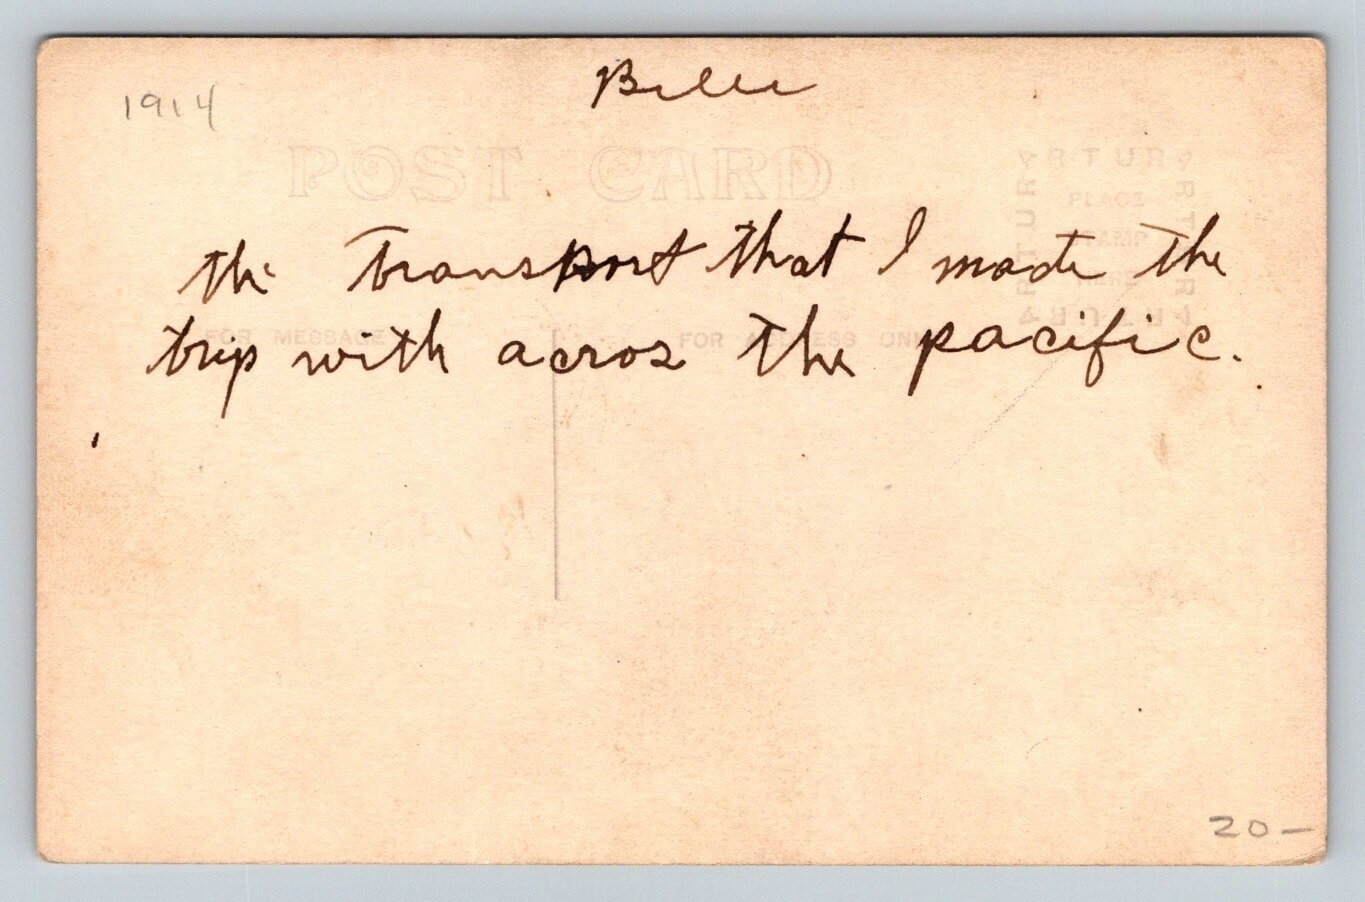 Bille
1914
POST CARD
ARTURA
PLACE
STAMP
HERE
the Transport that I made the
FOR MESSAGE
FOR ADDRESS ONLY
trip with acros the pacific.
20-